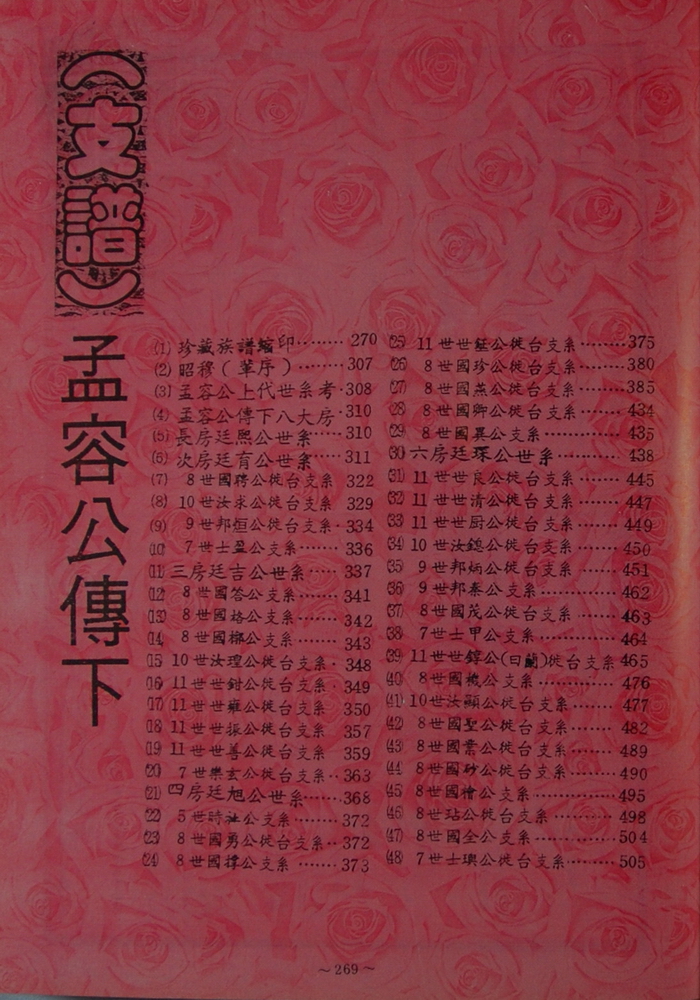 （支譜）
孟容公傳下
(1) 珍藏族譜縮印········270
(2) 昭穆（輩序）·······307
(3) 孟容公上代世系考·308
(4) 孟容公傳下八大房·310
(5) 長房廷熙公世系····310
(6) 次房廷育公世系····311
(7) 8世國聘公徙台支系 322
(8) 10世汝求公徙台支系 329
(9) 9世邦恒公徙台支系·334
(10) 7世士盈公支系·······336
(11) 三房廷吉公世系·····337
(12) 8世國答公支系·······341
(13) 8世國格公支系·······342
(14) 8世國梆公支系·······343
(15) 10世汝理公徙台支系·348
(16) 11世世鉗公徙台支系·349
(17) 11世世雍公徙台支系 350
(18) 11世世振公徙台支系 357
(19) 11世世善公徙台支系 359
(20) 7世樂玄公徙台支系··363
(21) 四房廷旭公世系······368
(22) 5世時祉公支系·······372
(23) 8世國勇公徙台支系··372
(24) 8世國撐公支系·······373
(25) 11世世鉦公徙台支系········375
(26) 8世國珍公徙台支系········380
(27) 8世國燕公徙台支系········385
(28) 8世國卿公徙台支系········434
(29) 8世國異公支系············435
(30) 六房廷琛公世系···········438
(31) 11世世良公徙台支系·······445
(32) 11世世清公徙台支系·······447
(33) 11世世厨公徙台支系·······449
(34) 10世汝鎴公徙台支系·······450
(35) 9世邦炳公徙台支系·······451
(36) 9世邦泰公支系············462
(37) 8世國茂公徙台支系·······463
(38) 7世士甲公支系············464
(39) 11世世錞公(曰蘭)徙台支系 465
(40) 8世國機公支系············476
(41) 10世汝顯公徙台支系·······477
(42) 8世國聖公徙台支系·······482
(43) 8世國業公徙台支系·······489
(44) 8世國砂公徙台支系·······490
(45) 8世國檜公支系············495
(46) 8世玷公徙台支系·········498
(47) 8世國全公支系············504
(48) 7世士璵公徙台支系·······505
～269～